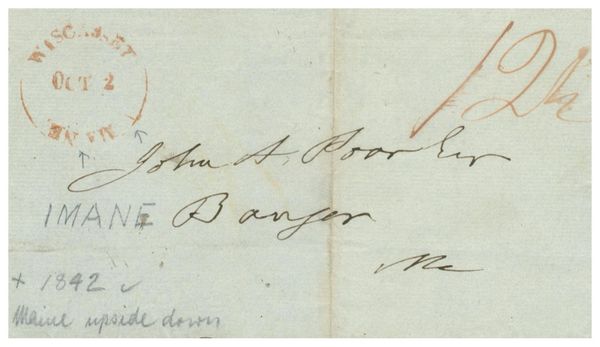 WISCASSET
OCT 2
IMANE
12½
John A. Poor Esqr
Bangor
Me
IMANE
+ 1842 ✓
Maine upside down